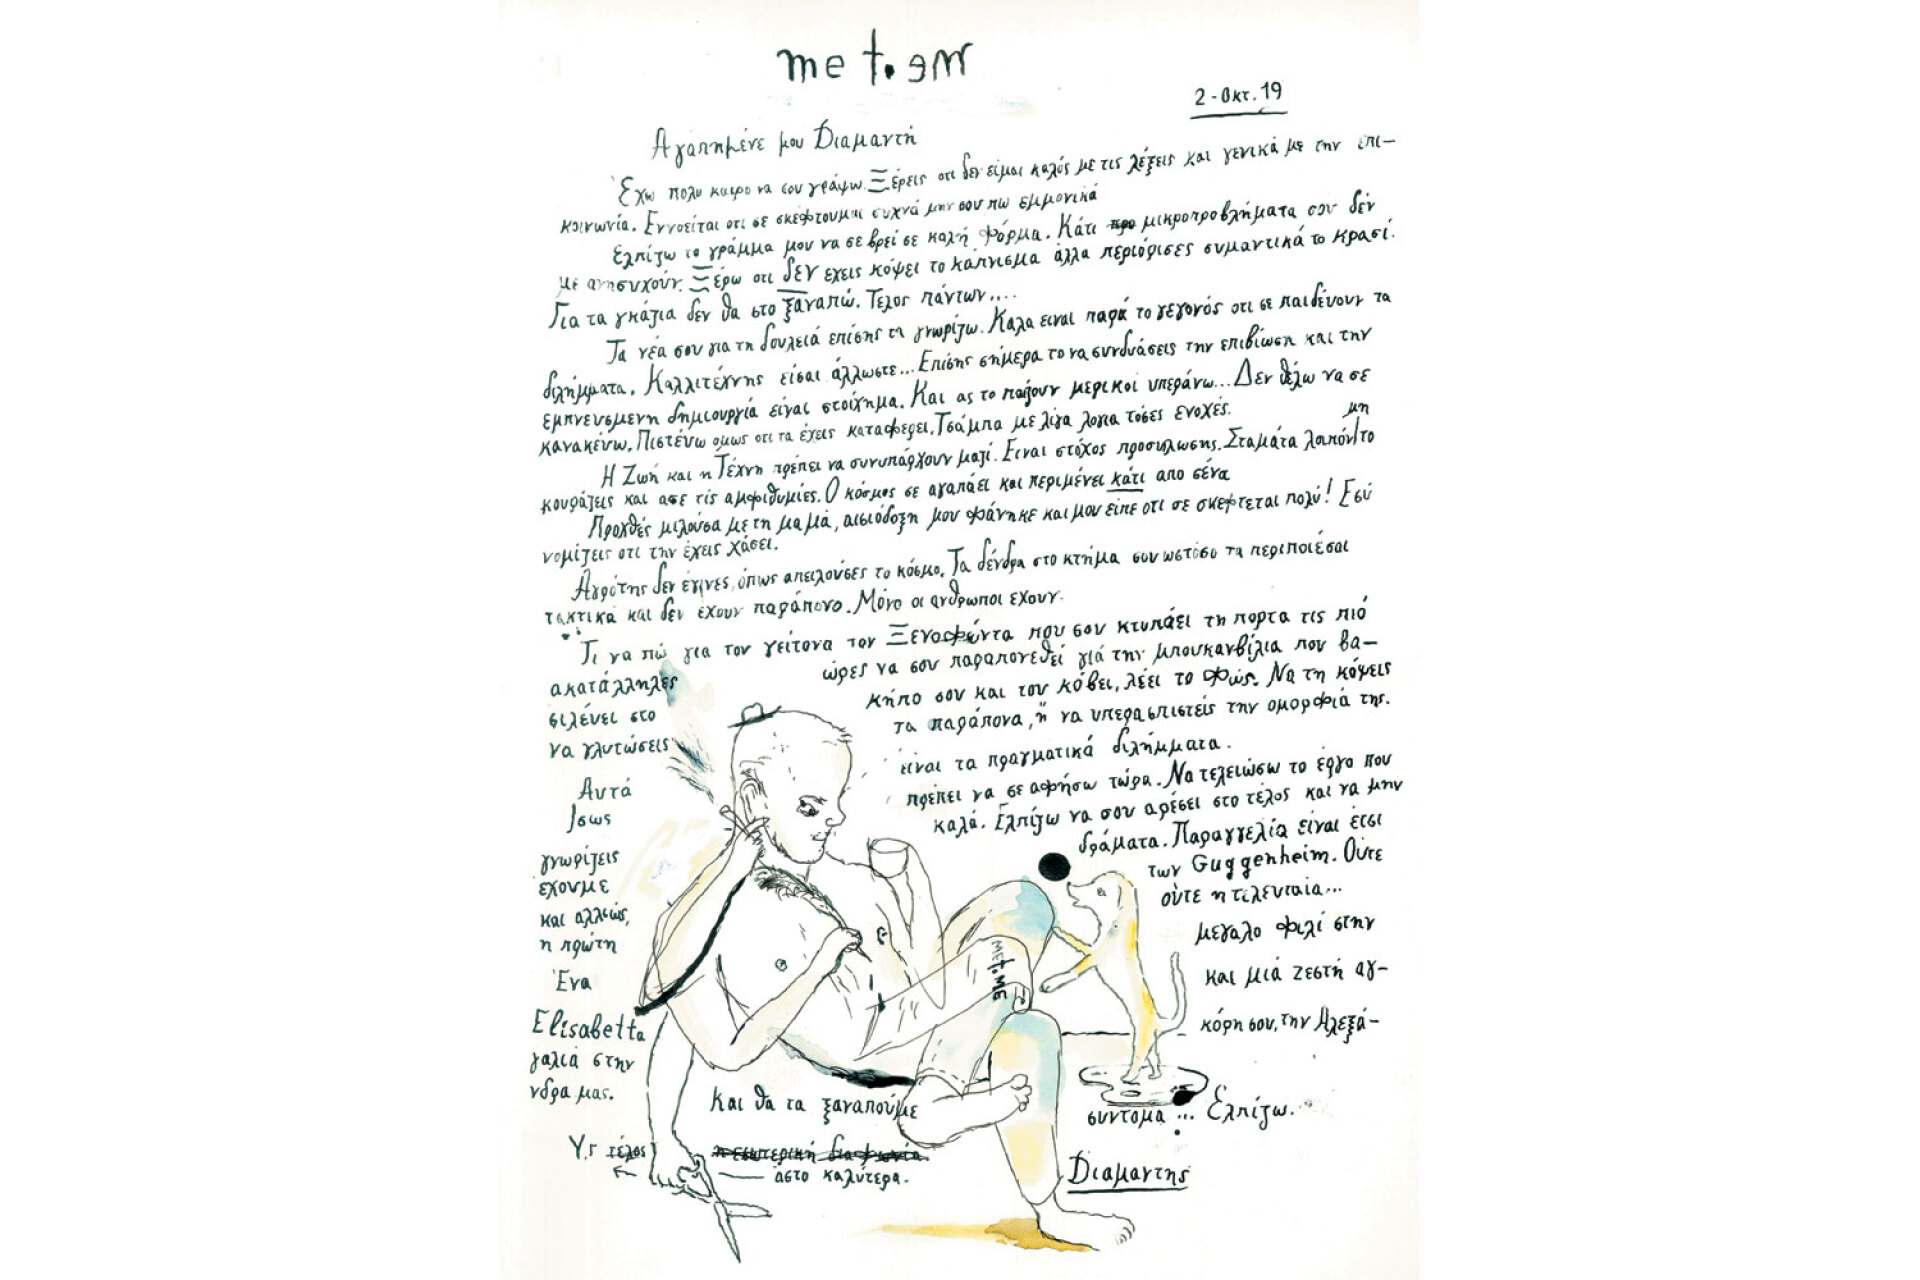 me t.em
2-Οκτ. 19
Αγαπημένε μου Διαμαντή
Έχω πολυ καιρο να σου γράψω. Ξέρεις οτι δεν είμαι καλός με τις λέξεις και γενικά με την επι-
κοινωνία. Εννοείται οτι σε σκέφτουμαι συχνά μην σου πω εμμονικά
Ελπίζω το γράμμα μου να σε βρεί σε καλή φόρμα. Κάτι προ μικροπροβλήματα σου δέν
με ανησυχούν. Ξέρω οτι δεν εχεις κόψει το κάπνισμα άλλα περιόρισες συμαντικά το κρασί.
Για τα γκάζια δεν θα στο ξαναπώ. Τέλος πάντων....
Τα νέα σου για τη δουλειά επίσης τα γνωρίζω. Καλα ειναι παρά το γεγονός οτι σε παιδένουν τα
διλήμματα. Καλλιτέχνης είσαι άλλωστε... Επίσης σήμερα το να συνδυάσεις την επιβίωση και την
εμπνευσμενη δημιουργία είναι στοίχημα. Και ας το παίζουν μερικοί υπεράνω... Δεν θέλω να σε
κανακένω. Πιστένω ομως οτι τα έχεις καταφερει. Τσάμπα με λίγα λογια τόσες ενοχές.
Η Ζωή και η Τέχνη πρέπει να συνυπάρχουν μαζί. Ειναι στόχος προσήλωσης. Σταμάτα λοιπόν μη το
κουράζεις και ασε τις αμφιθυμίες. Ο κόσμος σε αγαπάει και περιμένει κάτι απο σένα
Προχθές μιλούσα με τη μαμά, αισιόδοξη μου φάνηκε και μου είπε οτι σε σκέφτεται πολύ! Εσύ
νομίζεις οτι την έχεις χάσει.
Αγρότης δεν έγινες, όπως απειλούσες το κόσμο. Τα δένδρα στο κτήμα σου ωστόσο τα περιποιέσαι
τακτικά και δεν έχουν παράπονο. Μόνο οι ανθρωποι εχουν.
Τι να πώ για τον γείτονα τον Ξενοφώντα που σου κτυπάει τη πορτα τις πιό
ακατάλληλες ώρες να σου παραπονεθεί γιά την μπουκανβίλια που βα-
σιλένει στο κήπο σου και του κόβει, λέει το φώς. Να τη κόψεις
να γλυτώσεις τα παράπονα, ή να υπερασπιστείς την ομορφιά της.
Αυτά είναι τα πραγματικά διλήμματα.
Ίσως πρέπει να σε αφήσω τώρα. Να τελειώσω το έργο που
γνωρίζεις καλά. Ελπίζω να σου αρέσει στο τέλος και να μην
εχουμε δράματα. Παραγγελία είναι έτσι
και αλλιώς, των Guggenheim. Ούτε
η πρώτη ούτε η τελευταία...
Ένα μεγαλο φιλί στην
Elisabetta και μιά ζεστή αγ-
γαλιά στην κόρη σου, την Αλεξά-
νδρα μας.
Και θα τα ξαναπούμε συντομα... Ελπίζω.
Υ.Γ τέλος η εσωτερική διαφωνία
άστο καλύτερα.
Διαμαντης
ME t.ME